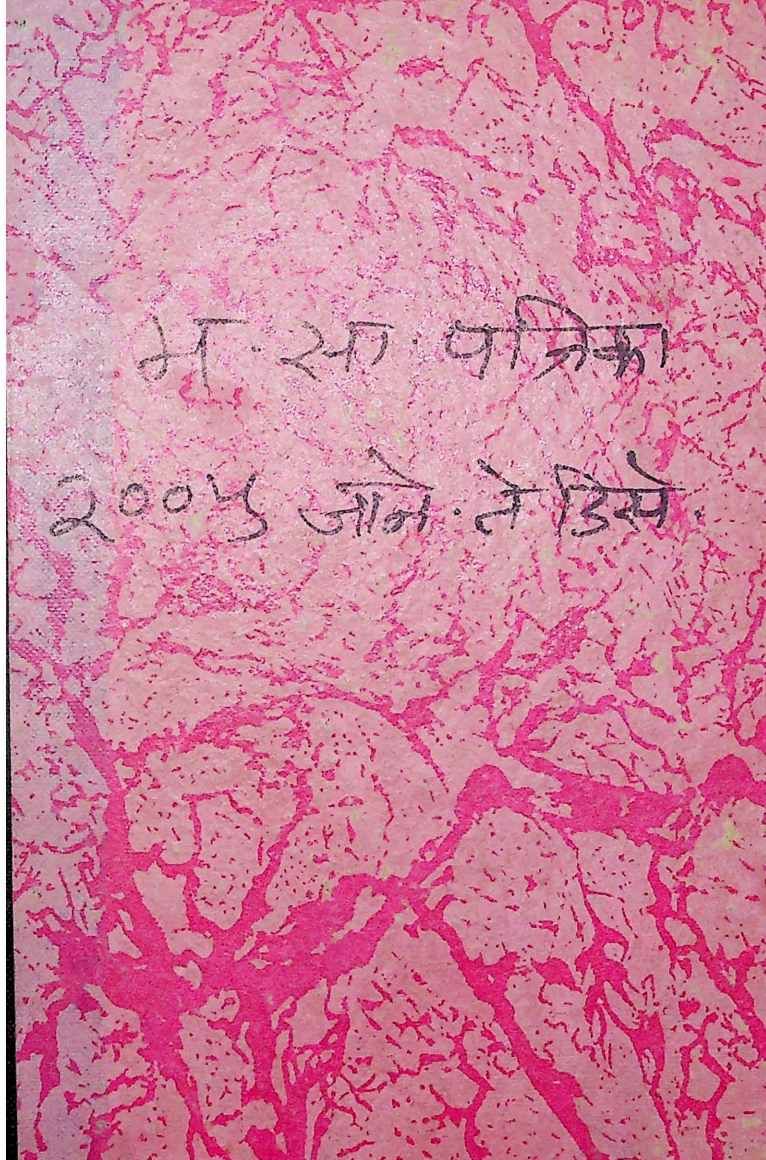 म. सा. पत्रिका
२००५ जाने. ते डिसे.